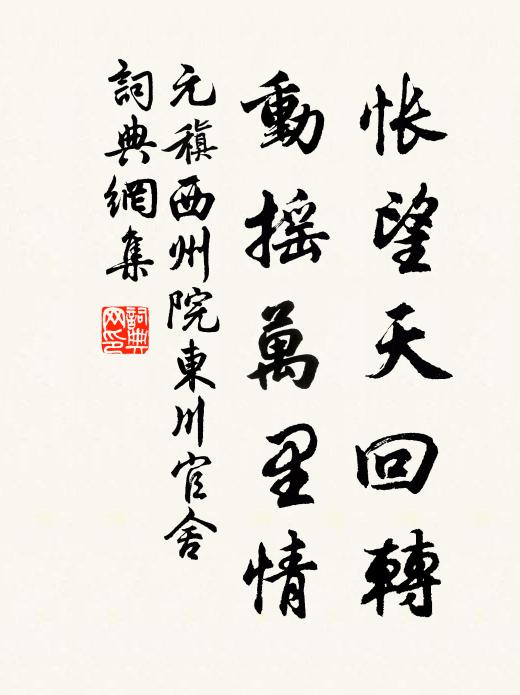 悵望天回轉
動搖萬里情
元稹西州院東川官舍
詞典網集
詞典
网印